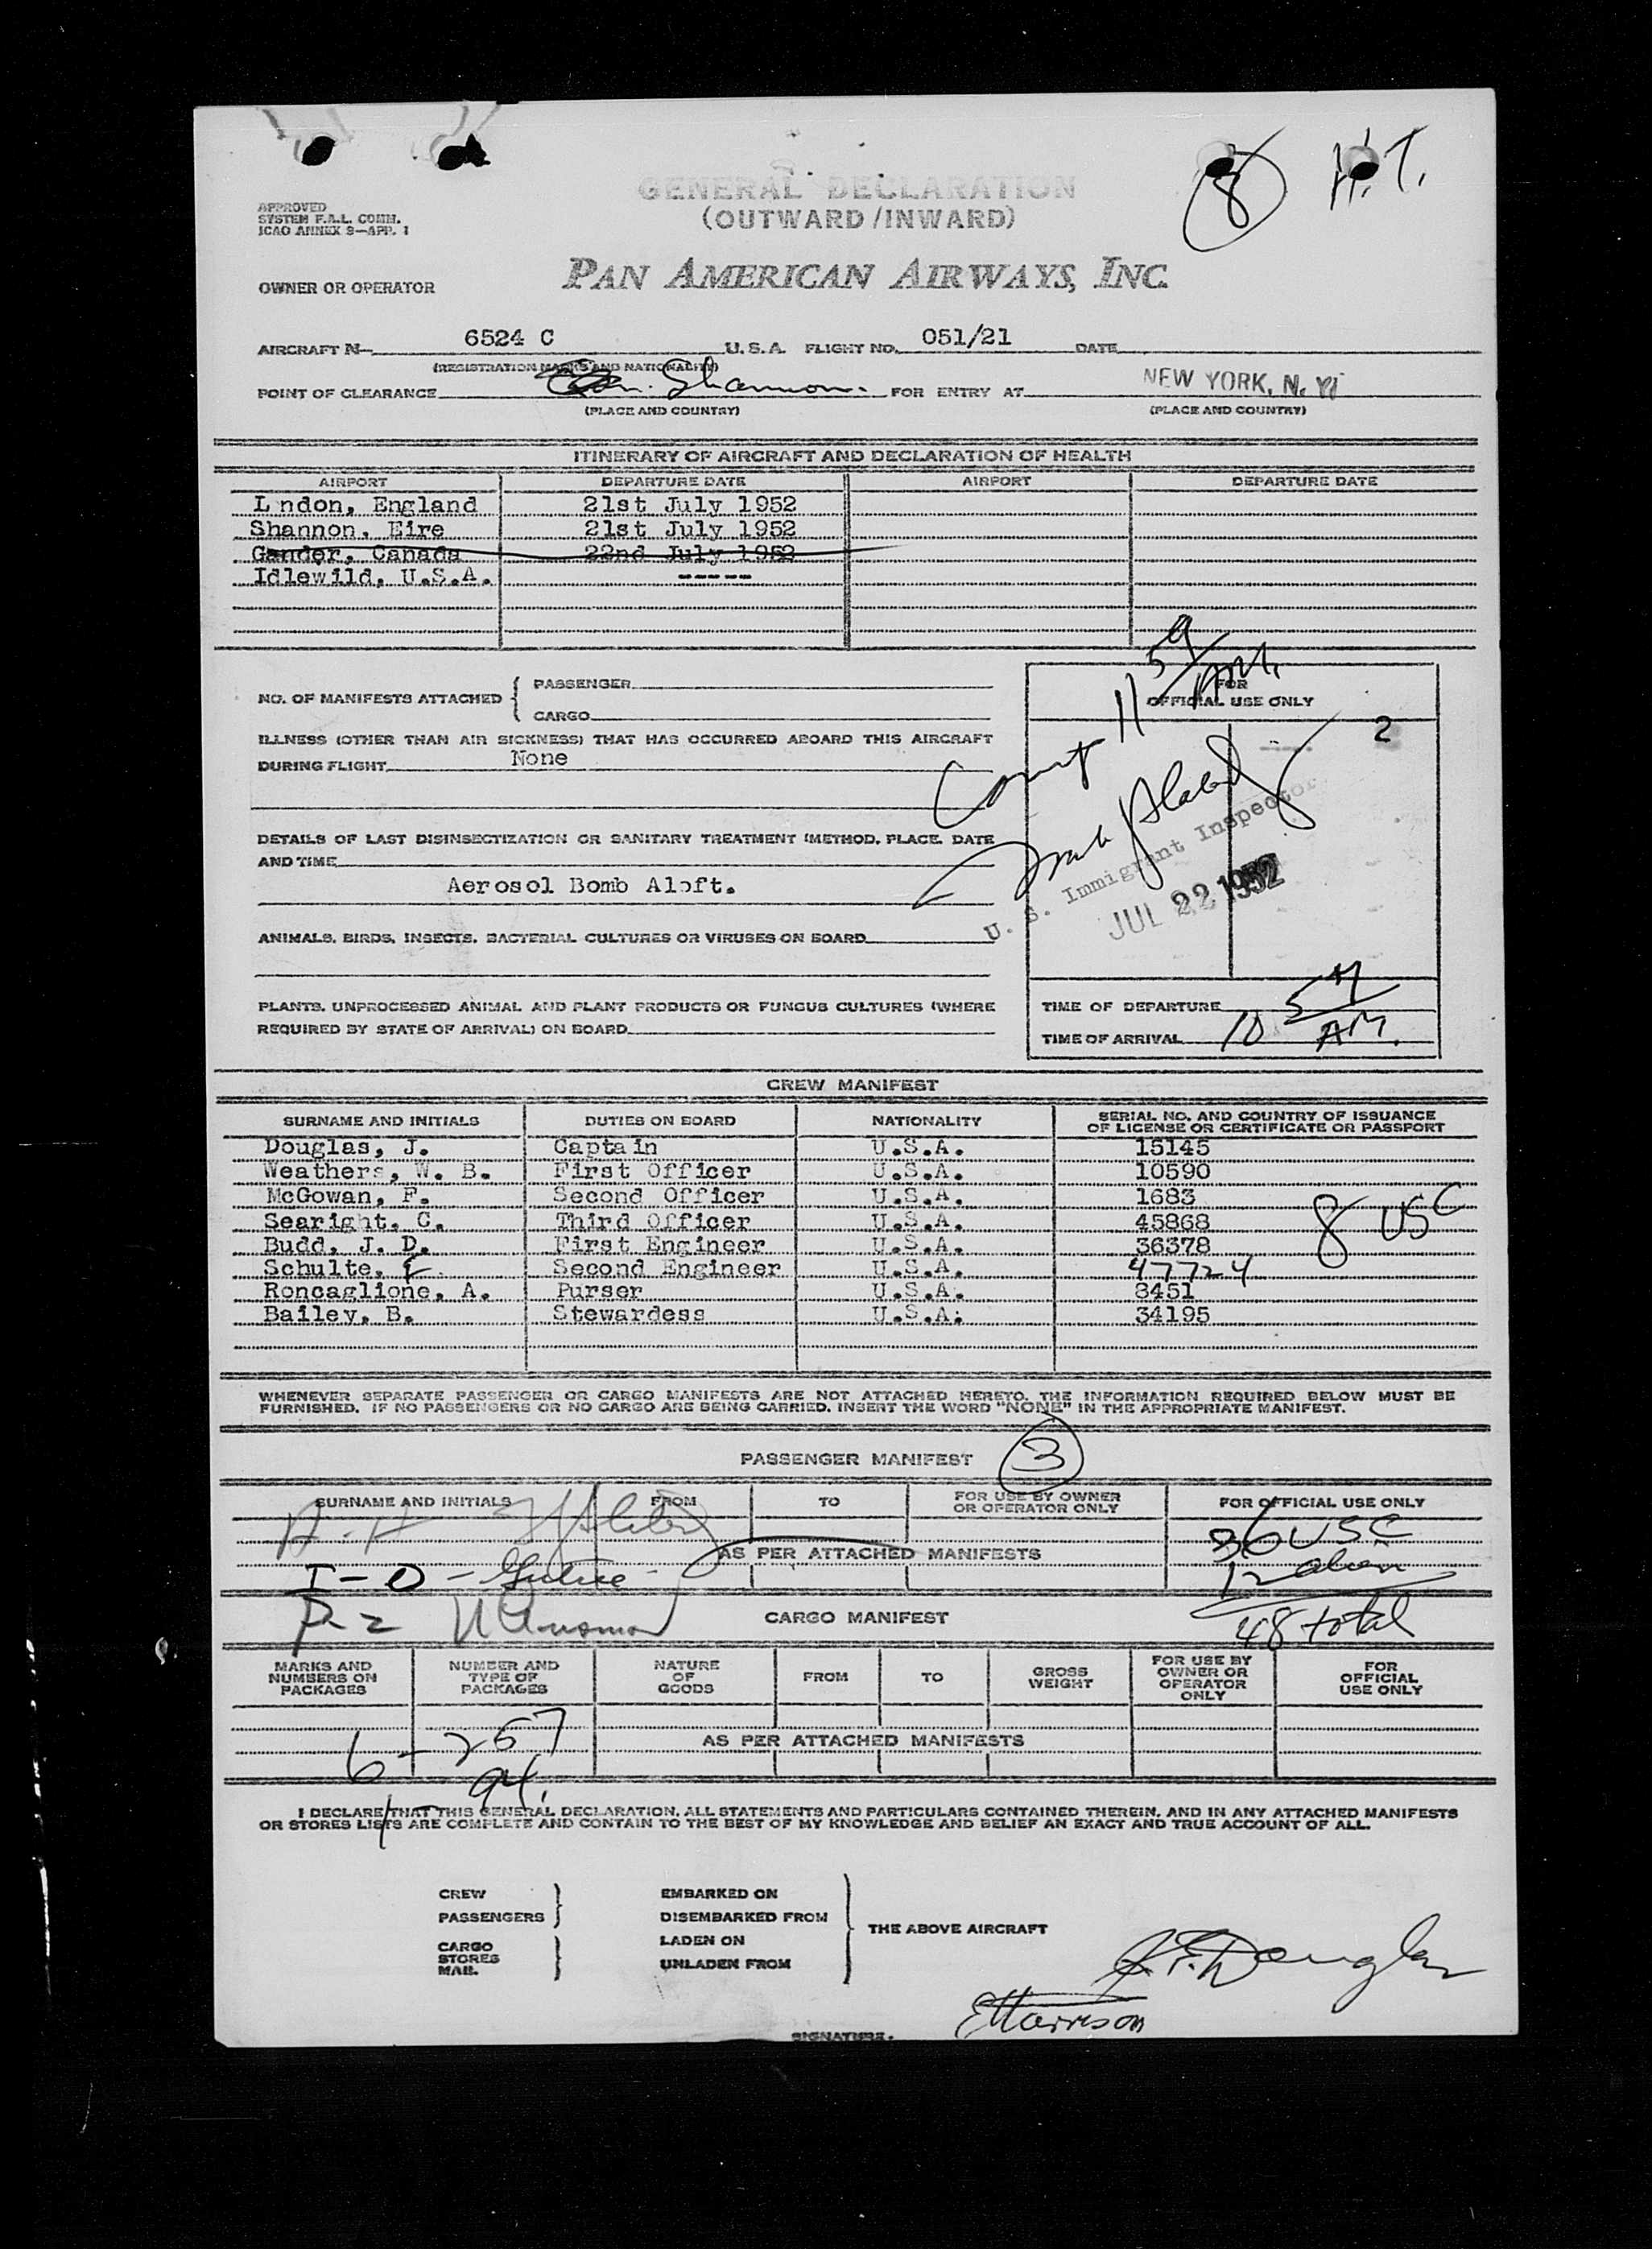 8 H.T.
GENERAL DECLARATION
(OUTWARD/INWARD)
APPROVED
SYSTEM F.A.L. COMM.
ICAO ANNEX 9—APP. 1
OWNER OR OPERATOR PAN AMERICAN AIRWAYS, INC.
AIRCRAFT N— 6524 C U.S.A. FLIGHT NO. 051/21 DATE
(REGISTRATION MARKS AND NATIONALITY)
POINT OF CLEARANCE Shannon. FOR ENTRY AT NEW YORK, N. Y.
(PLACE AND COUNTRY) (PLACE AND COUNTRY)
ITINERARY OF AIRCRAFT AND DECLARATION OF HEALTH
AIRPORT DEPARTURE DATE AIRPORT DEPARTURE DATE
L ndon, England 21st July 1952
Shannon, Eire 21st July 1952
Gander, Canada 22nd July 1952
Idlewild, U.S.A. -----
NO. OF MANIFESTS ATTACHED { PASSENGER
CARGO
11 59 AM.
FOR
OFFICIAL USE ONLY
2
ILLNESS (OTHER THAN AIR SICKNESS) THAT HAS OCCURRED ABOARD THIS AIRCRAFT
DURING FLIGHT None
DETAILS OF LAST DISINSECTIZATION OR SANITARY TREATMENT (METHOD, PLACE, DATE
AND TIME
Aerosol Bomb Aloft.
U. S. Immigrant Inspector
JUL 22 1952
ANIMALS, BIRDS, INSECTS, BACTERIAL CULTURES OR VIRUSES ON BOARD
PLANTS, UNPROCESSED ANIMAL AND PLANT PRODUCTS OR FUNGUS CULTURES (WHERE
REQUIRED BY STATE OF ARRIVAL) ON BOARD
TIME OF DEPARTURE
TIME OF ARRIVAL 10 AM.
CREW MANIFEST
SURNAME AND INITIALS DUTIES ON BOARD NATIONALITY SERIAL NO. AND COUNTRY OF ISSUANCE
OF LICENSE OR CERTIFICATE OR PASSPORT
Douglas, J. Captain U.S.A. 15145
Weathers, W. B. First Officer U.S.A. 10590
McGowan, F. Second Officer U.S.A. 1683
Searight, C. Third Officer U.S.A. 45868
8 USC
Budd, J. D. First Engineer U.S.A. 36378
Schulte, F Second Engineer U.S.A. 47724
Roncaglione, A. Purser U.S.A. 8451
Bailey, B. Stewardess U.S.A. 34195
WHENEVER SEPARATE PASSENGER OR CARGO MANIFESTS ARE NOT ATTACHED HERETO, THE INFORMATION REQUIRED BELOW MUST BE
FURNISHED. IF NO PASSENGERS OR NO CARGO ARE BEING CARRIED, INSERT THE WORD "NONE" IN THE APPROPRIATE MANIFEST.
PASSENGER MANIFEST 3
SURNAME AND INITIALS FROM TO FOR USE BY OWNER
OR OPERATOR ONLY FOR OFFICIAL USE ONLY
36 USC
AS PER ATTACHED MANIFESTS
12 alien
I-O-
P-2
CARGO MANIFEST
48 total
MARKS AND
NUMBERS ON
PACKAGES NUMBER AND
TYPE OF
PACKAGES NATURE
OF
GOODS FROM TO GROSS
WEIGHT FOR USE BY
OWNER OR
OPERATOR
ONLY FOR
OFFICIAL
USE ONLY
6-257
AS PER ATTACHED MANIFESTS
I DECLARE THAT THIS GENERAL DECLARATION, ALL STATEMENTS AND PARTICULARS CONTAINED THEREIN, AND IN ANY ATTACHED MANIFESTS
OR STORES LISTS ARE COMPLETE AND CONTAIN TO THE BEST OF MY KNOWLEDGE AND BELIEF AN EXACT AND TRUE ACCOUNT OF ALL.
CREW
PASSENGERS }
CARGO
STORES
MAIL }
EMBARKED ON
DISEMBARKED FROM
LADEN ON
UNLADEN FROM }
THE ABOVE AIRCRAFT
Douglas
EHarrison
SIGNATURE.